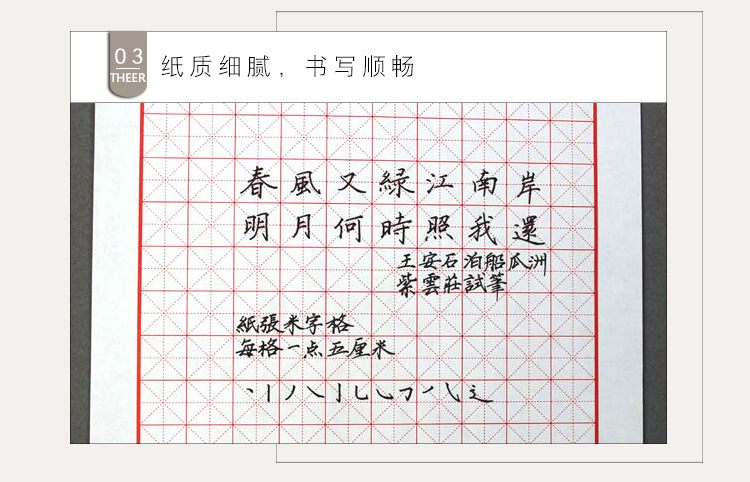 03
THEER
纸质细腻，书写顺畅
春風又緑江南岸
明月何時照我還
王安石泊船瓜洲
紫雲莊試筆
紙張米字格
每格一点五厘米